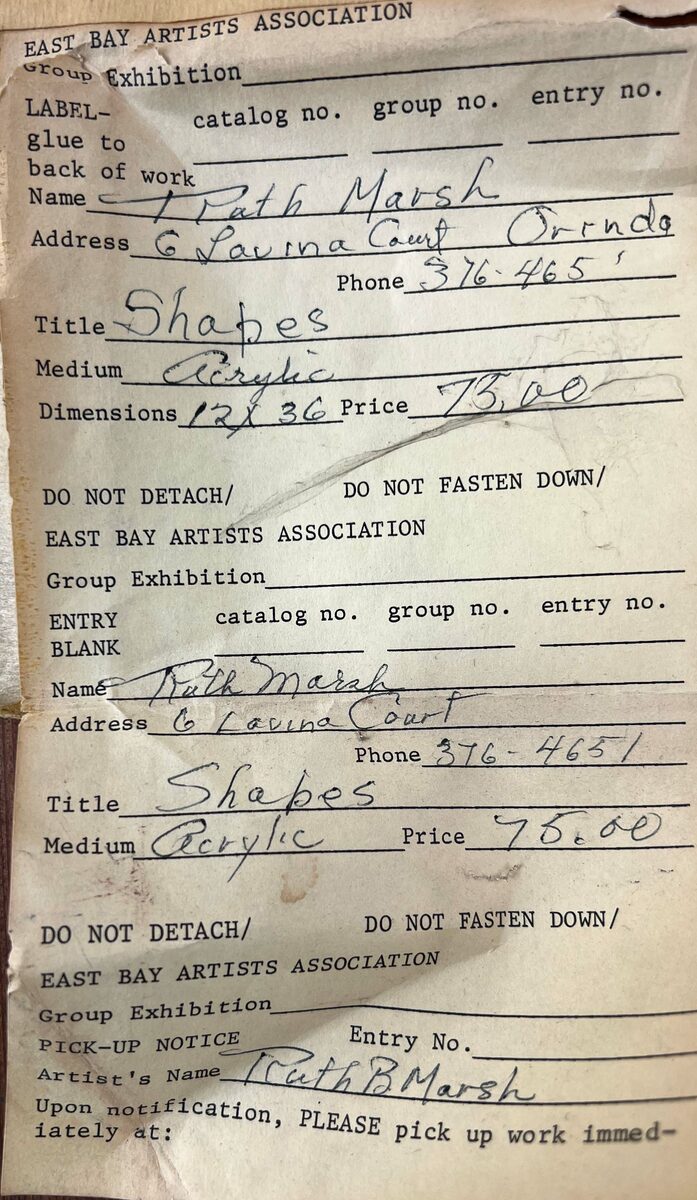 EAST BAY ARTISTS ASSOCIATION
Group Exhibition
LABEL- catalog no. group no. entry no.
glue to
back of work
Name Ruth Marsh
Address 6 Lavina Court Orinda
Phone 376-4651
Title Shapes
Medium Acrylic
Dimensions 12X 36 Price 75.00
DO NOT DETACH/ DO NOT FASTEN DOWN/
EAST BAY ARTISTS ASSOCIATION
Group Exhibition
ENTRY catalog no. group no. entry no.
BLANK
Name Ruth Marsh
Address 6 Lavina Court
Phone 376-4651
Title Shapes
Medium Acrylic Price 75.00
DO NOT DETACH/ DO NOT FASTEN DOWN/
EAST BAY ARTISTS ASSOCIATION
Group Exhibition
PICK-UP NOTICE Entry No.
Artist's Name Ruth B Marsh
Upon notification, PLEASE pick up work immed-
iately at: